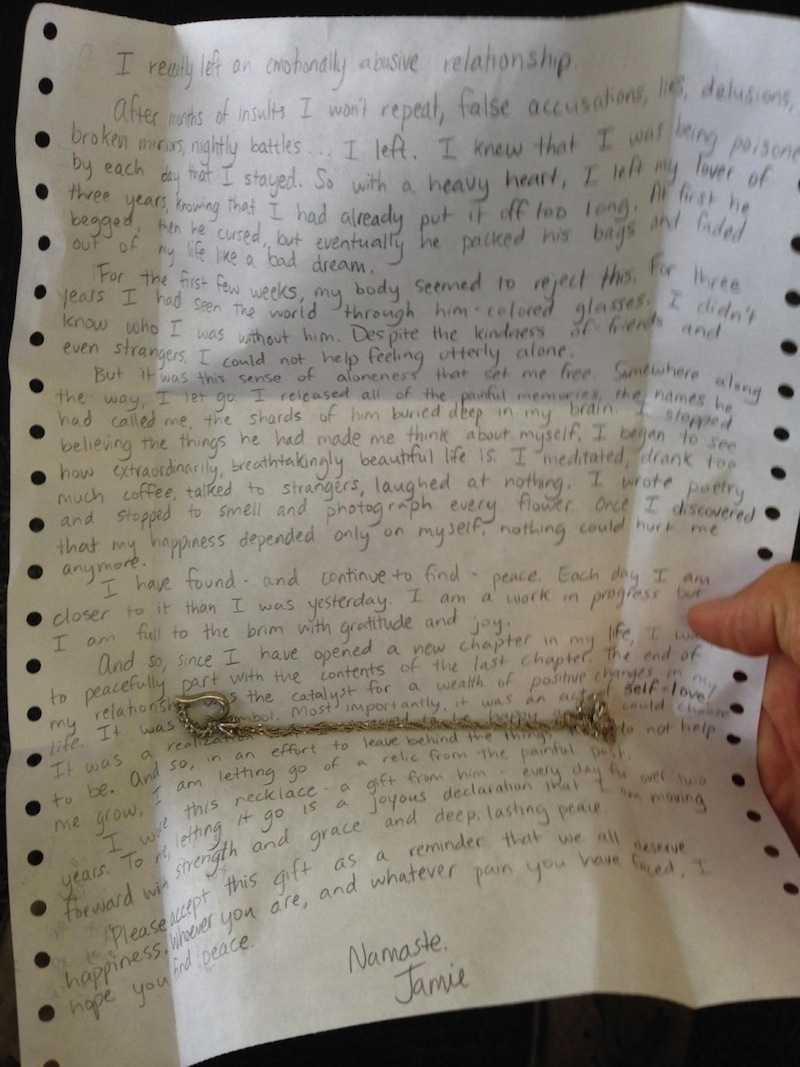 I recently left an emotionally abusive relationship.
After months of insults I won't repeat, false accusations, lies, delusions,
broken mirrors, nightly battles... I left. I knew that I was being poisone
by each day that I stayed. So with a heavy heart, I left my lover of
three years, knowing that I had already put it off too long. At first he
begged, then he cursed, but eventually he packed his bags and faded
out of my life like a bad dream.
For the first few weeks, my body seemed to reject this. For three
years I had seen the world through him-colored glasses. I didn't
know who I was without him. Despite the kindness of friends and
even strangers, I could not help feeling utterly alone.
But it was this sense of aloneness that set me free. Somewhere along
the way, I let go. I released all of the painful memories, the names he
had called me, the shards of him buried deep in my brain. I stopped
believing the things he had made me think about myself. I began to see
how extraordinarily, breathtakingly beautiful life is. I meditated, drank too
much coffee, talked to strangers, laughed at nothing. I wrote poetry
and stopped to smell and photograph every flower. Once I discovered
that my happiness depended only on myself, nothing could hurt me
anymore.
I have found - and continue to find - peace. Each day I am
closer to it than I was yesterday. I am a work in progress but
I am full to the brim with gratitude and joy.
And so, since I have opened a new chapter in my life, I
to peacefully part with the contents of the last chapter. The end of
my relationship was the catalyst for a wealth of positive changes in my
life. It was symbol. Most importantly, it was an act of self-love.
It was a to be happy could choose
to be. And so, in an effort to leave behind the things do not help
me grow, I am letting go of a relic from the painful past.
I wore this necklace - a gift from him - every day for over two
years. To letting it go is a joyous declaration that I am moving
forward with strength and grace and deep, lasting peace.
Please accept this gift as a reminder that we all deserve
happiness. Whoever you are, and whatever pain you have faced, I
hope you find peace.
Namaste.
Jamie